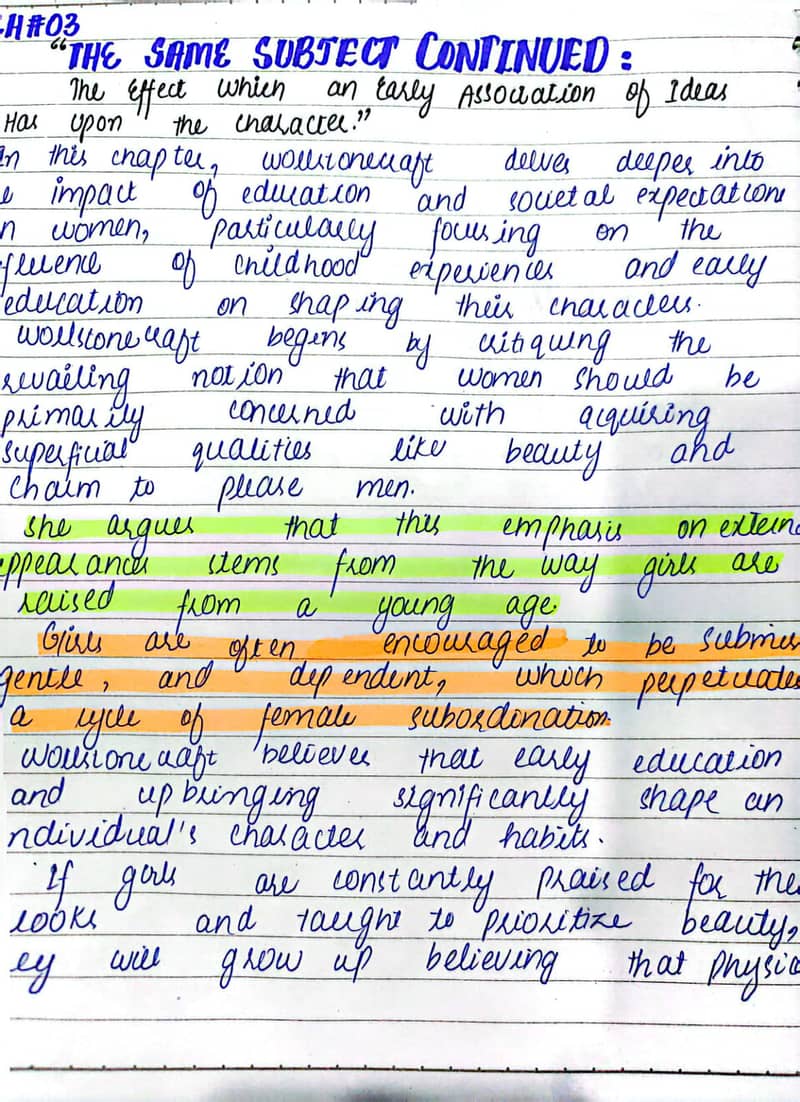 CH#03
"THE SAME SUBJECT CONTINUED:
The Effect which an Early Association of Ideas
Has upon the character."
In this chapter, wollstonecraft delves deeper into
e impact of education and societal expectations
n women, particularly focusing on the
fluence of childhood experiences and early
education on shaping their characters.
Wollstonecraft begins by critiquing the
revailing notion that women should be
primarily concerned with acquiring
superficial qualities like beauty and
charm to please men.
she argues that this emphasis on extern
appearances stems from the way girls are
raised from a young age.
Girls are often encouraged to be submis
gentle, and dependent, which perpetuates
a cycle of female subordination.
Wollstonecraft believes that early education
and upbringing significantly shape an
ndividual's character and habits.
If girls are constantly praised for the
looks and taught to prioritize beauty,
ey will grow up believing that physic